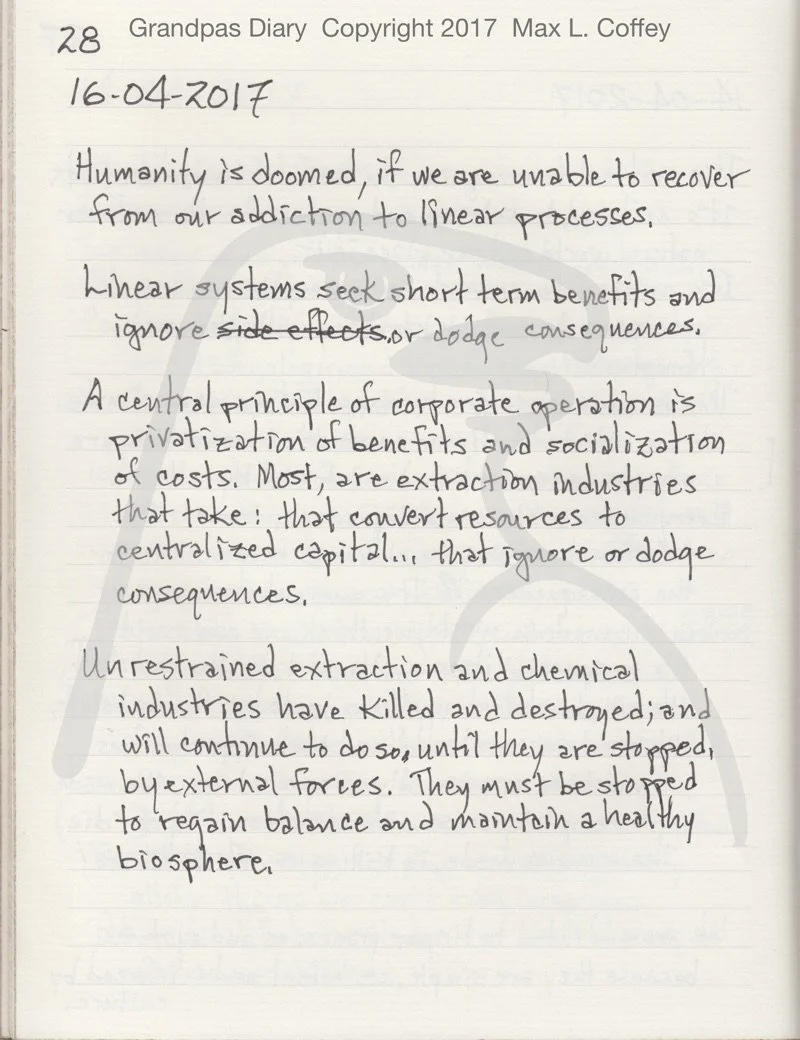 Grandpas Diary Copyright 2017 Max L. Coffey
28
16-04-2017
Humanity is doomed, if we are unable to recover
from our addiction to linear processes.
Linear systems seek short term benefits and
ignore side effects. or dodge consequences.
A central principle of corporate operation is
privatization of benefits and socialization
of costs. Most, are extraction industries
that take: that convert resources to
centralized capital... that ignore or dodge
consequences.
Unrestrained extraction and chemical
industries have killed and destroyed; and
will continue to do so, until they are stopped,
by external forces. They must be stopped
to regain balance and maintain a healthy
biosphere.